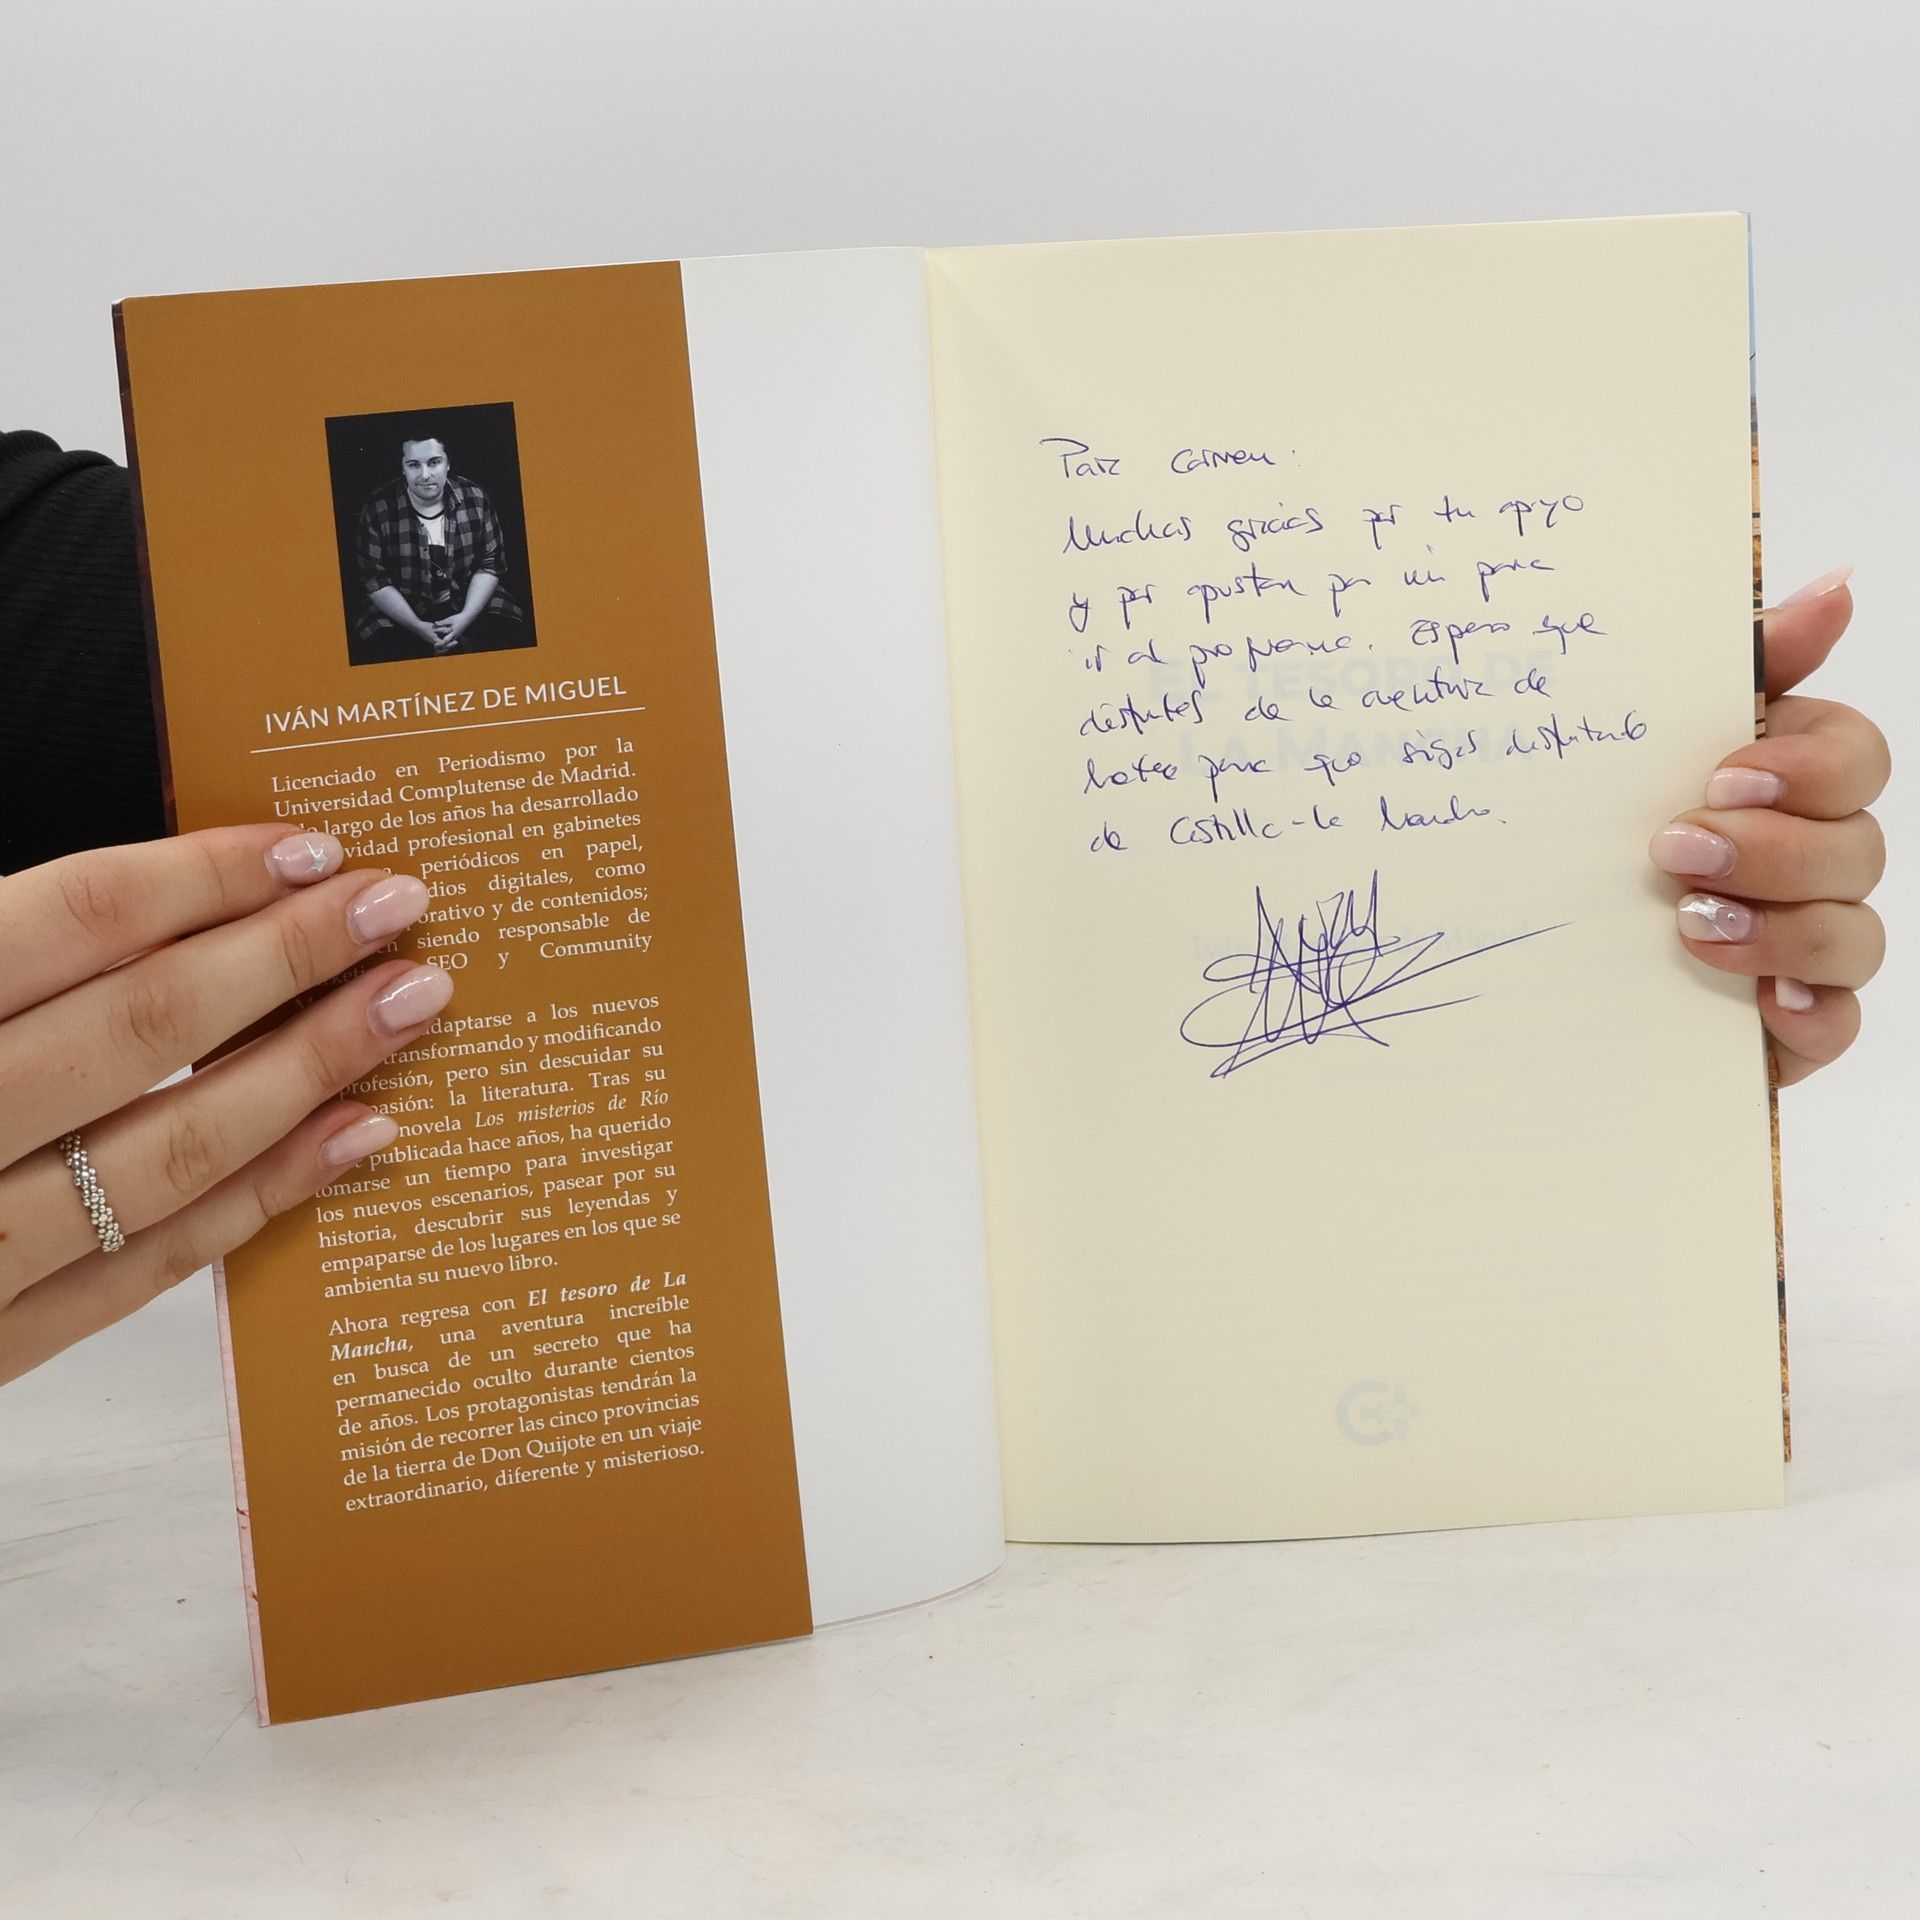 IVÁN MARTÍNEZ DE MIGUEL
Licenciado en Periodismo por la
Universidad Complutense de Madrid.
largo de los años ha desarrollado
vidad profesional en gabinetes
periódicos en papel,
dios digitales, como
orativo y de contenidos;
siendo responsable de
SEO y Community
adaptarse a los nuevos
transformando y modificando
profesión, pero sin descuidar su
pasión: la literatura. Tras su
novela Los misterios de Río
publicada hace años, ha querido
tomarse un tiempo para investigar
los nuevos escenarios, pasear por su
historia, descubrir sus leyendas y
empaparse de los lugares en los que se
ambienta su nuevo libro.
Ahora regresa con El tesoro de La
Mancha, una aventura increíble
en busca de un secreto que ha
permanecido oculto durante cientos
de años. Los protagonistas tendrán la
misión de recorrer las cinco provincias
de la tierra de Don Quijote en un viaje
extraordinario, diferente y misterioso.
Para Carmen:
Muchas gracias por tu apoyo
y por apostar por mí para
ir al programa. Espero que
disfrutes de la aventura de
Mateo para que sigas disfrutando
de Castilla-La Mancha.
EL TESORO DE
LA MANCHA